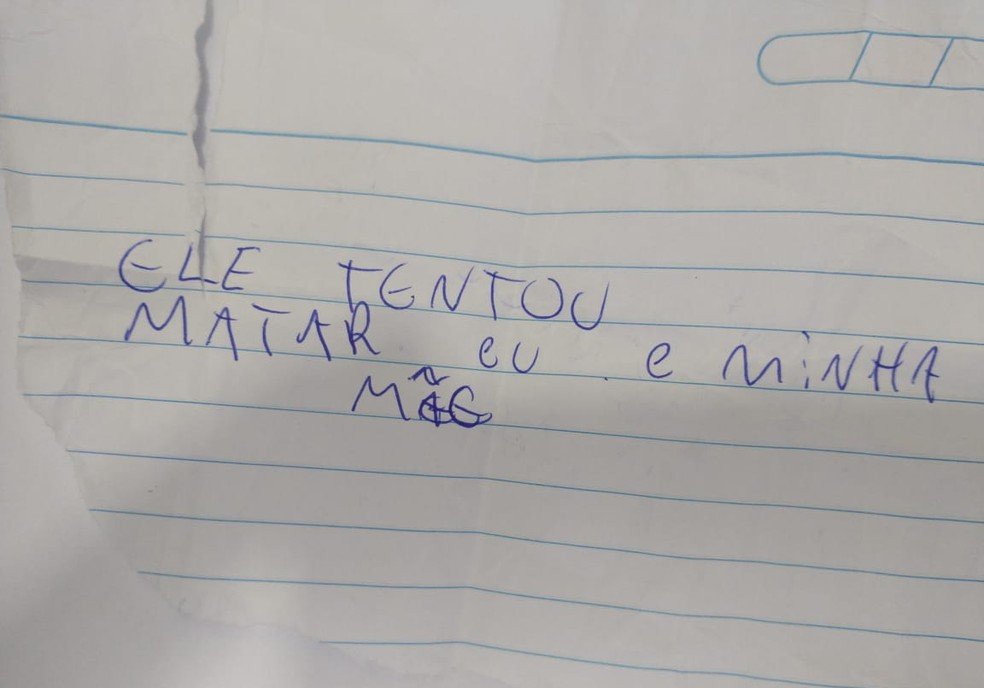 ELE TENTOU
MATAR eu e MiNHA
MÃE